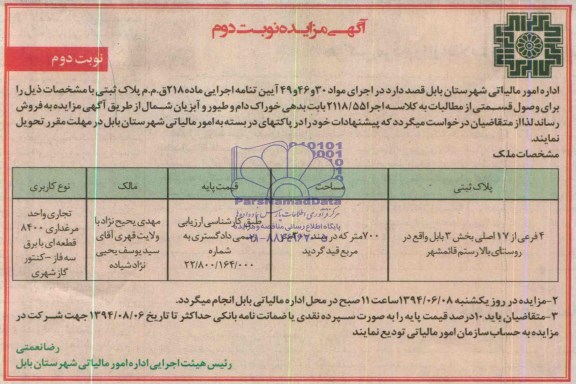 آگهی مزایده نوبت دوم
نوبت دوم
اداره امور مالیاتی شهرستان بابل قصد دارد در اجرای مواد ۳۰و۴۶و۴۹ آیین نامه اجرایی ماده۲۱۸ق.م.م پلاک ثبتی با مشخصات ذیل را
برای وصول قسمتی از مطالبات به کلاسه اجرا۲۱۱۸/۵۵ بابت بدهی خوراک دام و طیور و آبزیان شمال از طریق آگهی مزایده به فروش
رساند لذا از متقاضیان درخواست میگردد که پیشنهادات خود را در پاکتهای در بسته به امور مالیاتی شهرستان بابل در مهلت مقرر تحویل
نمایند.
مشخصات ملک
پلاک ثبتی
مساحت
قیمت پایه
مالک
نوع کاربری
۴ فرعی از ۱۷ اصلی بخش ۳ بابل واقع در
روستای بالا رستم قائمشهر
۷۰۰متر که در سند
مربع قید گردید
طبق کارشناسی ارزیابی
رسمی دادگستری به
شماره
۲۲/۸۰۰/۱۶۴/۰۰۰
مهدی یحیح نژاد با
ولایت قهری آقای
سید یوسف یحیی
نژاد شیاده
تجاری واحد
مرغداری ۸۴۰۰
قطعه ای با برق
سه فاز-کنتور
گاز شهری
ParsNamadData
پایگاه اطلاع رسانی مناقصه و مزایده
۲-مزایده در روز یکشنبه ۱۳۹۴/۰۶/۰۸ ساعت ۱۱ صبح در محل اداره مالیاتی بابل انجام میگردد.
۳-متقاضیان باید ۱۰درصد قیمت پایه را به صورت سپرده نقدی یا ضمانت نامه بانکی حداکثر تا تاریخ ۱۳۹۴/۰۸/۰۶ جهت شرکت در
مزایده به حساب سازمان امور مالیاتی تودیع نمایند
رضا نعمتی
رئیس هیئت اجرایی اداره امور مالیاتی شهرستان بابل